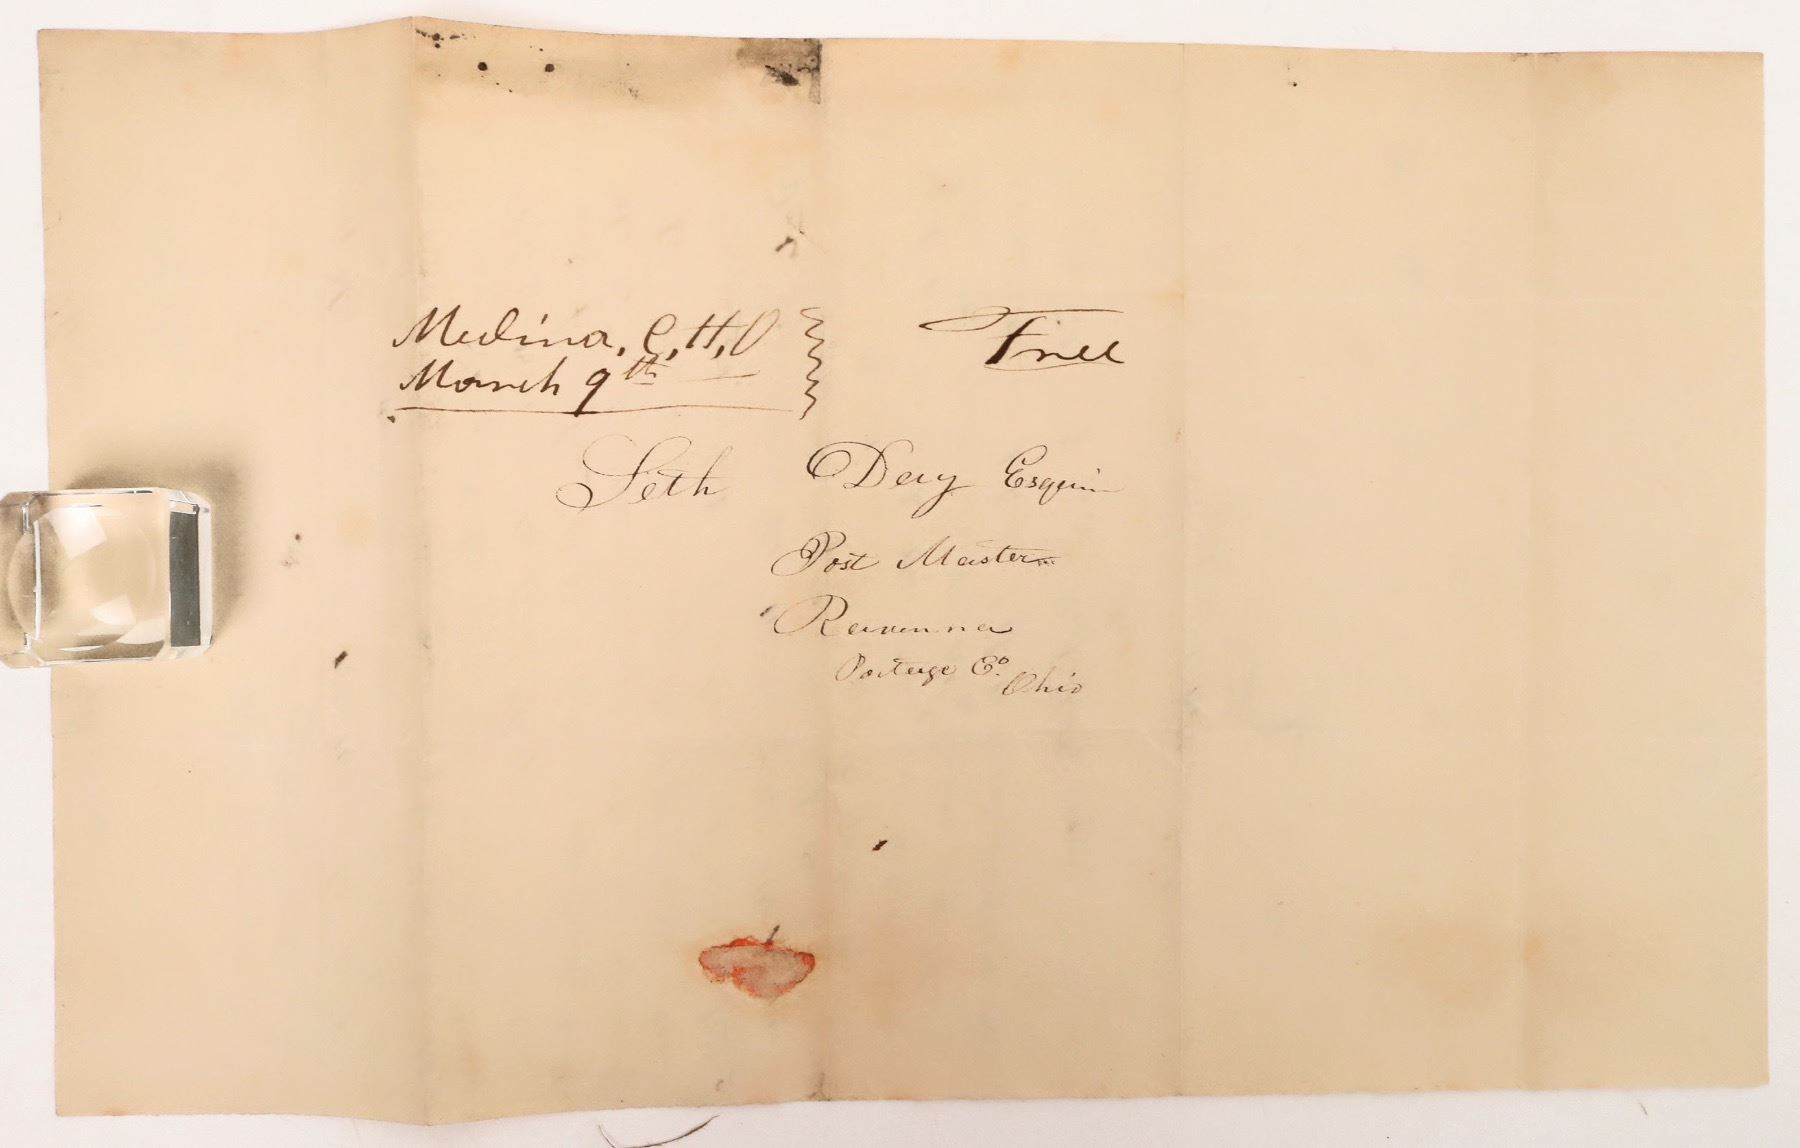 Medina, C,H,O
March 9th
Free
Seth Day Esquire
Post Master
Ravenna
Portage Co.
Ohio